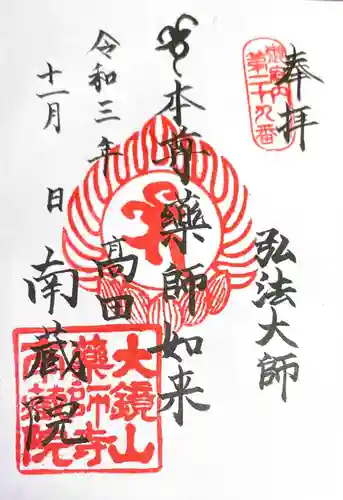 奉拝
第二十九番
弘法大師
本尊藥師如来
令和三年
十一月 日
高田
南蔵院
大鏡山
藥師寺
南藏院